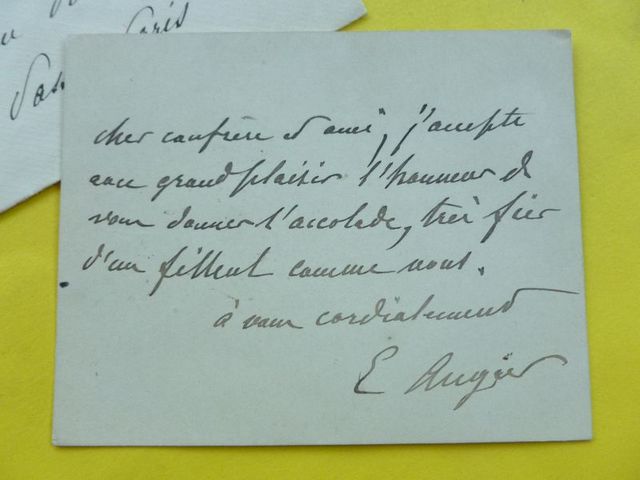 Paris
cher confrère et ami, j'accepte
avec grand plaisir l'honneur de
vous donner l'accolade, très fier
d'un filleul comme vous.
à vous cordialement
E Augier